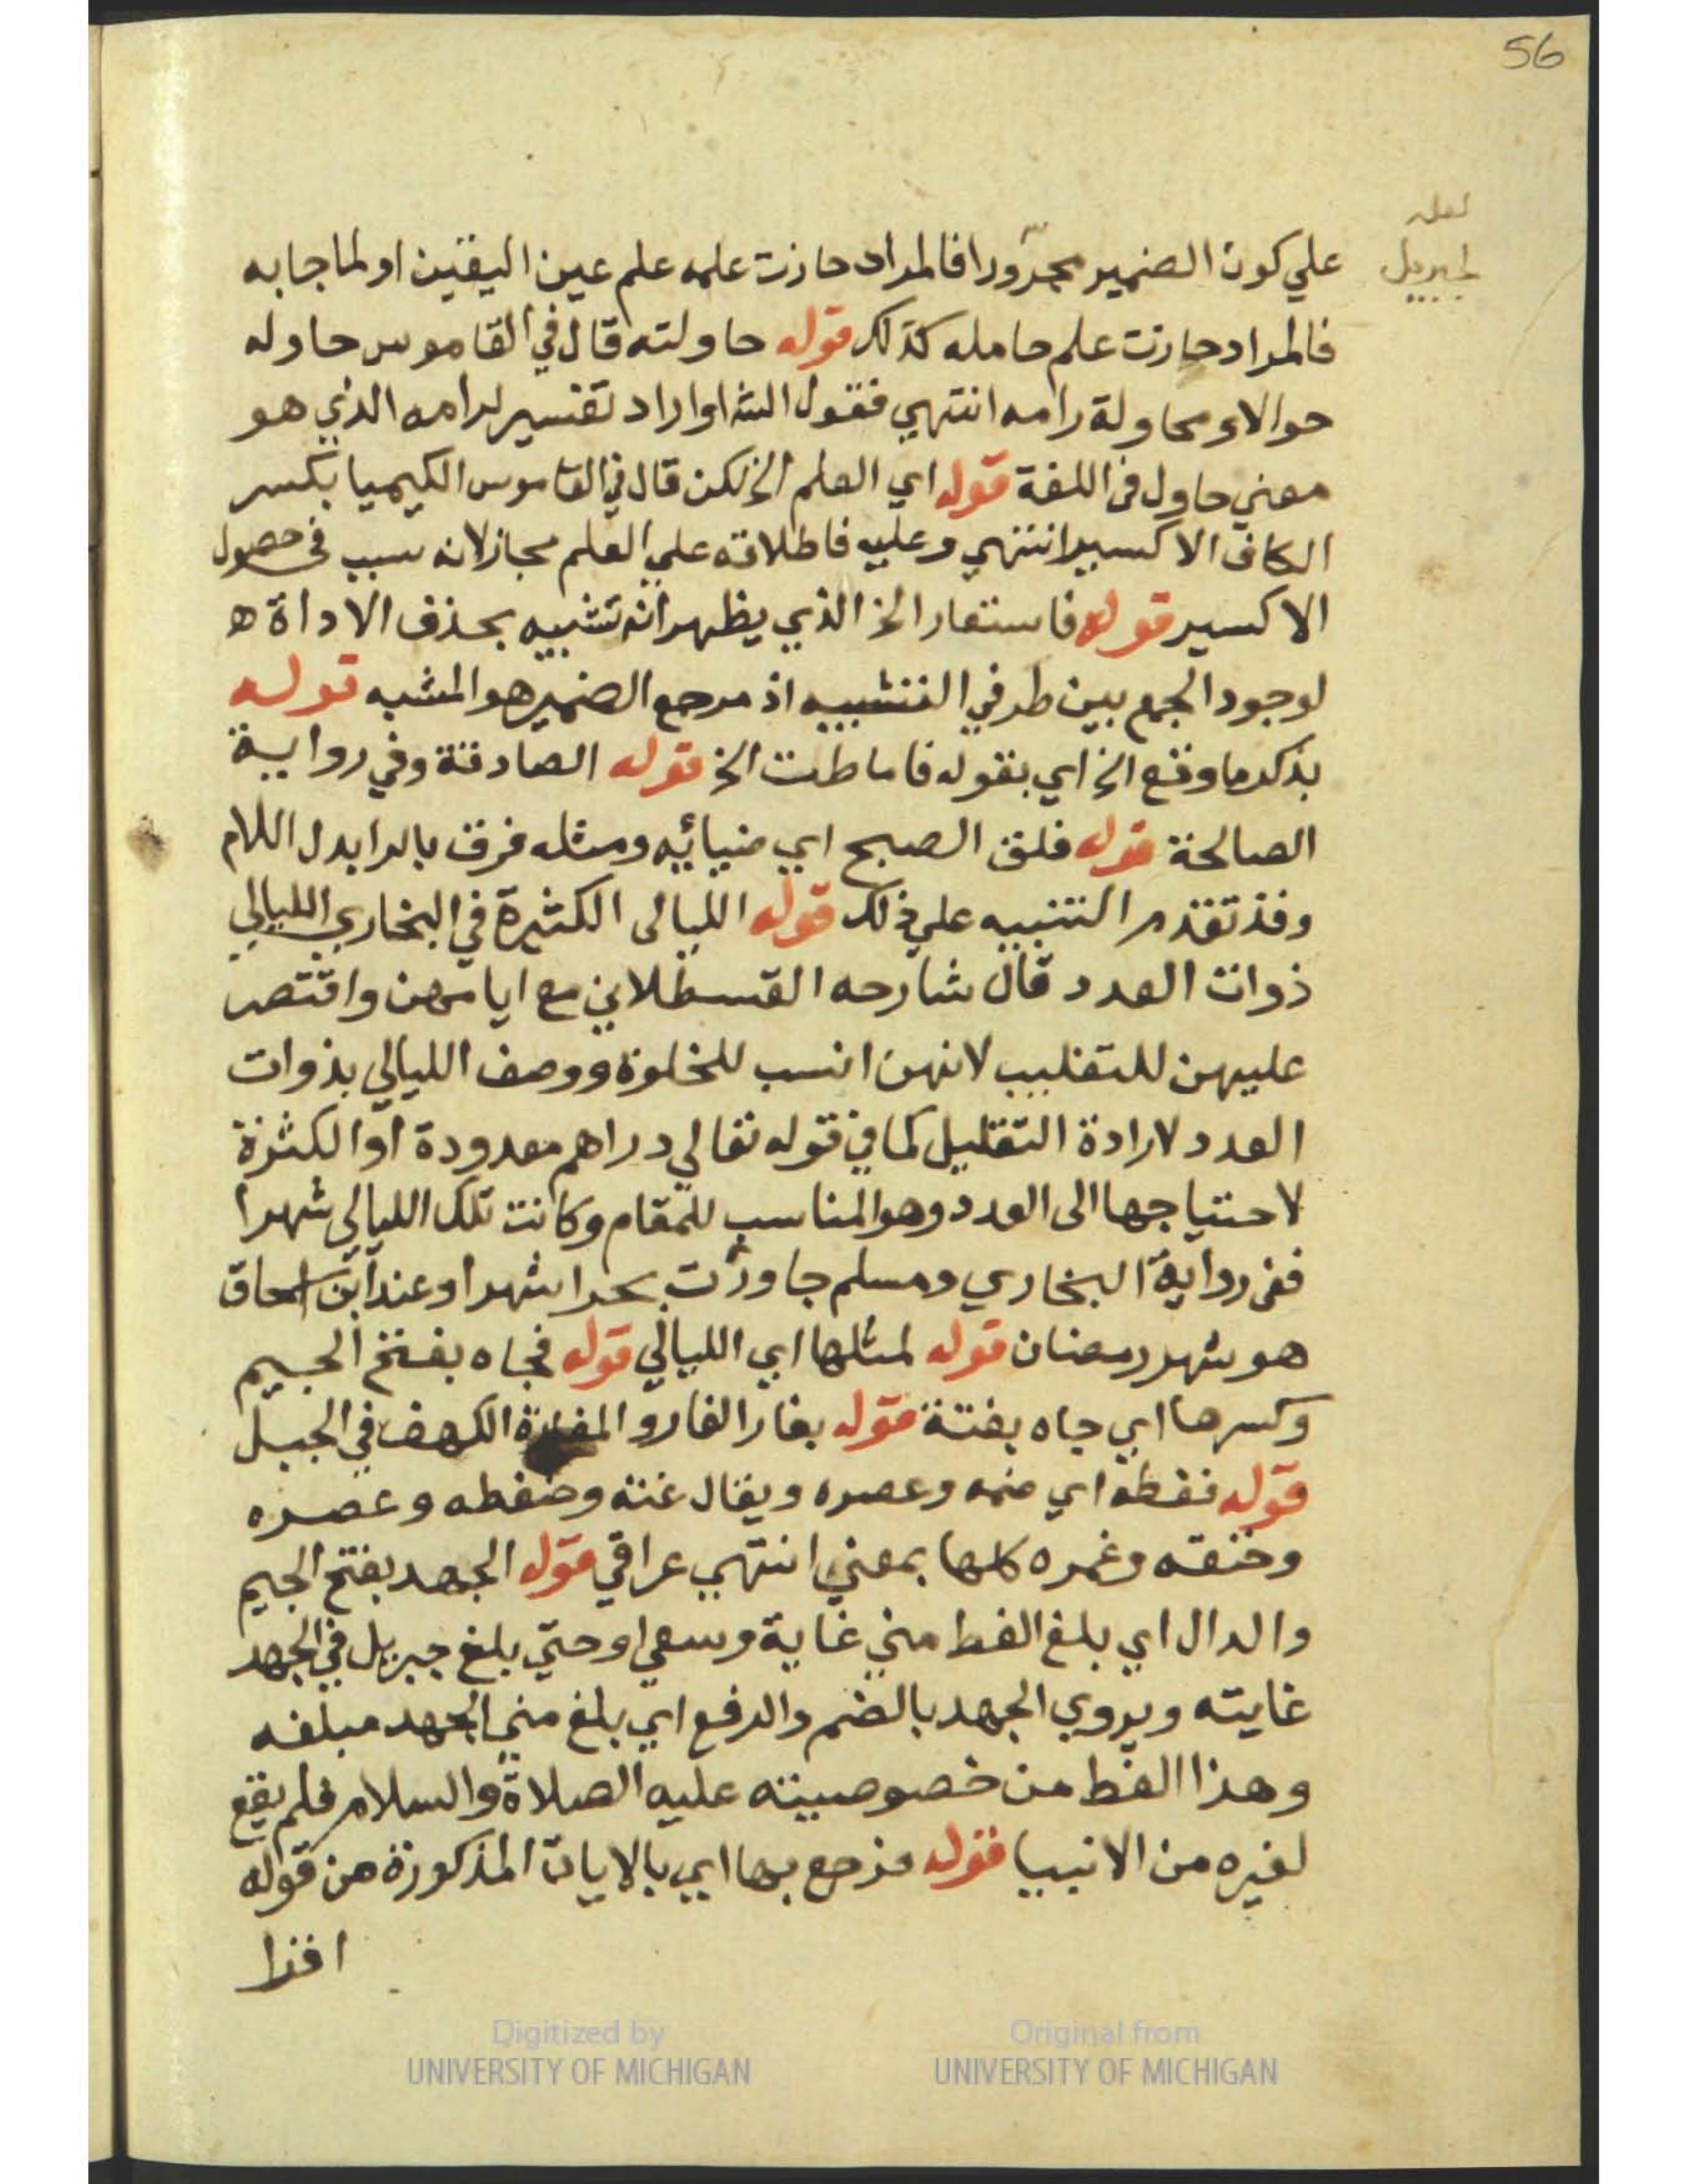 56
لعله
لجبريل
علي كون الضمير مجرورا فالمراد حازت علمه علم عين اليقين او لما جا به
فالمراد حازت علم حامله كذلك قوله حاولته قال في القاموس حاوله
حوالا ومحاولة رامه انتهي فقول الشـ او اراد تفسير لرامه الذي هو
معني حاول في اللغة قوله اي العلم الخ لكن قال في القاموس الكيميا بكسر
الكاف الاكسير انتهي وعليه فاطلاقه علي العلم مجاز لانه سبب في حصول
الاكسير قوله فاستعار الخ الذي يظهر انه تشبيه بحذف الاداة ه
لوجود الجمع بين طرفي التشبيه اذ مرجع الضمير هو المشبه قوله
بذكر ما وقع الخ اي بقوله فاماطت الخ قوله الصادقة وفي رواية
الصالحة قوله فلق الصبح اي ضيائه ومثله فرق بالرا بدل اللام
وقد تقدم التنبيه علي ذلك قوله الليالى الكثيرة في البخاري الليالي
ذوات العدد قال شارحه القسطلاني مع ايامهن واقتصر
عليهن للتغليب لانهن انسب للخلوة ووصف الليالي بذوات
العدد لارادة التقليل كما في قوله تعالي دراهم معدودة او الكثرة
لاحتياجها الى العدد وهو المناسب للمقام وكانت تلك الليالي شهرا
ففي رواية البخاري ومسلم جاورت بحرا شهرا وعند ابن اسحاق
هو شهر رمضان قوله لمثلها اي الليالي قوله فجاه بفتح الجيم
وكسرها اي جاه بغتة قوله بغار الغار والمغارة الكهف في الجبل
قوله فغطه اي ضمه وعصره ويقال غته وضغطه وعصره
وخنقه وغمره كلها بمعني انتهي عراقي قوله الجهد بفتح الجيم
والدال اي بلغ الغط مني غاية وسعي او حتي بلغ جبريل في الجهد
غايته ويروي الجهد بالضم والرفع اي بلغ مني الجهد مبلغه
وهذا الغط من خصوصيته عليه الصلاة والسلام فلم يقع
لغيره من الانبيا قوله فرجع بها اي بالايات المذكورة من قوله
اقرا
Digitized by
UNIVERSITY OF MICHIGAN
Original from
UNIVERSITY OF MICHIGAN